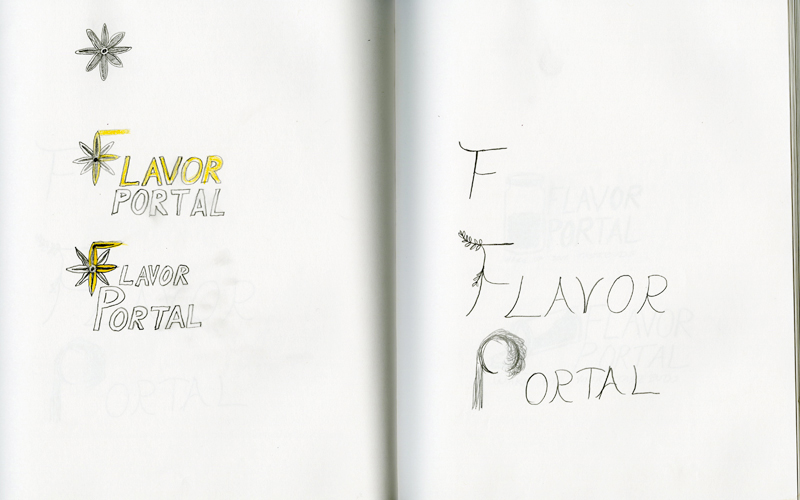 FLAVOR
PORTAL
FLAVOR
PORTAL
F
FLAVOR
PORTAL